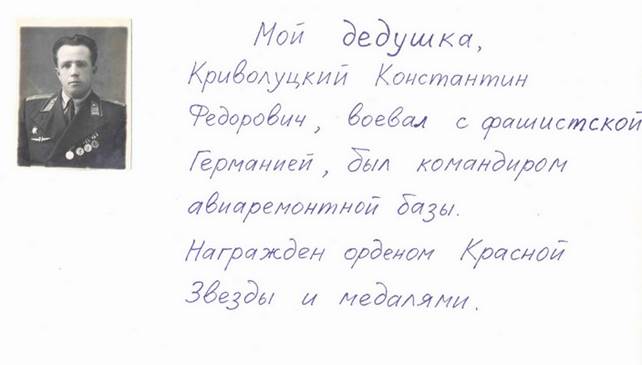 Мой дедушка,
Криволуцкий Константин
Федорович, воевал с фашистской
Германией, был командиром
авиаремонтной базы.
Награжден орденом Красной
Звезды и медалями.